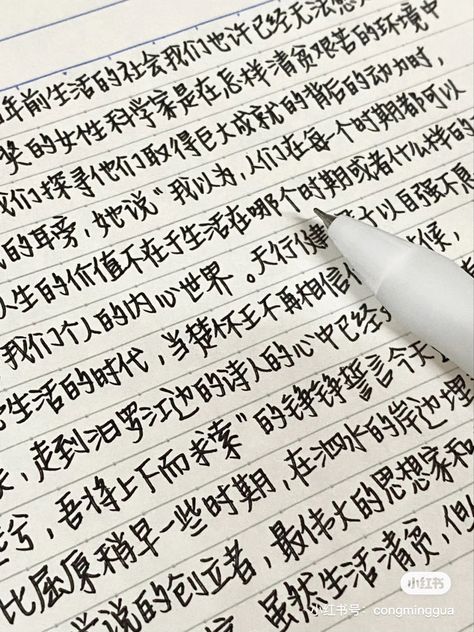 年前生活的社会我们也许已经无法想
奖的女性科学家是在怎样清贫艰苦的环境中
我们探寻他们取得巨大成就的背后的动力时，
的耳旁，她说“我以为，人们在每一个时期都可以
人生的价值不在于生活在哪个时期或者什么样的
我们个人的内心世界。天行健 子以自强不息
生活的时代，当楚怀王不再相信 时候，
走到汨罗江边的诗人的心中已经
兮，吾将上下而求索”的铮铮誓言今天
比屈原稍早一些时期，在泗水的岸边埋
学说的创立者，最伟大的思想家和
虽然生活清贫，但
小红书
小红书号：congminggua